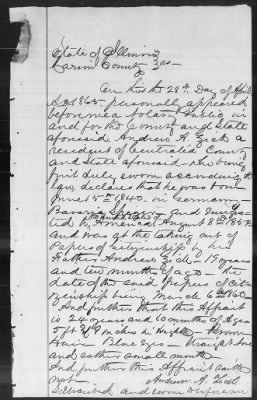 State of Illinois
Marion County } ss
On this the 28th Day of April
1865 personally appeared
before me a Notary Public in
and for the County and State
aforesaid Andrew A.
a resident of Centralia County
and State aforesaid who being
first duly sworn according to
law, declares that he was born
June 15th 1840. in Germany
Bavaria and Emigra
ted to America August 1852
and was at the taking out of
Papers of citizenship by his
Father Andrew 19 years
and ten months of age the
date of the said papers of citi-
zenship being March 1860
And further that this Affiant
is 24 years and 10 months of age
5 ft 9 inches in height Brown
Hair Blue Eyes Straight nose
and rather small mouth
And further this Affiant saith
not. Andrew A.
Subscribed and sworn before me